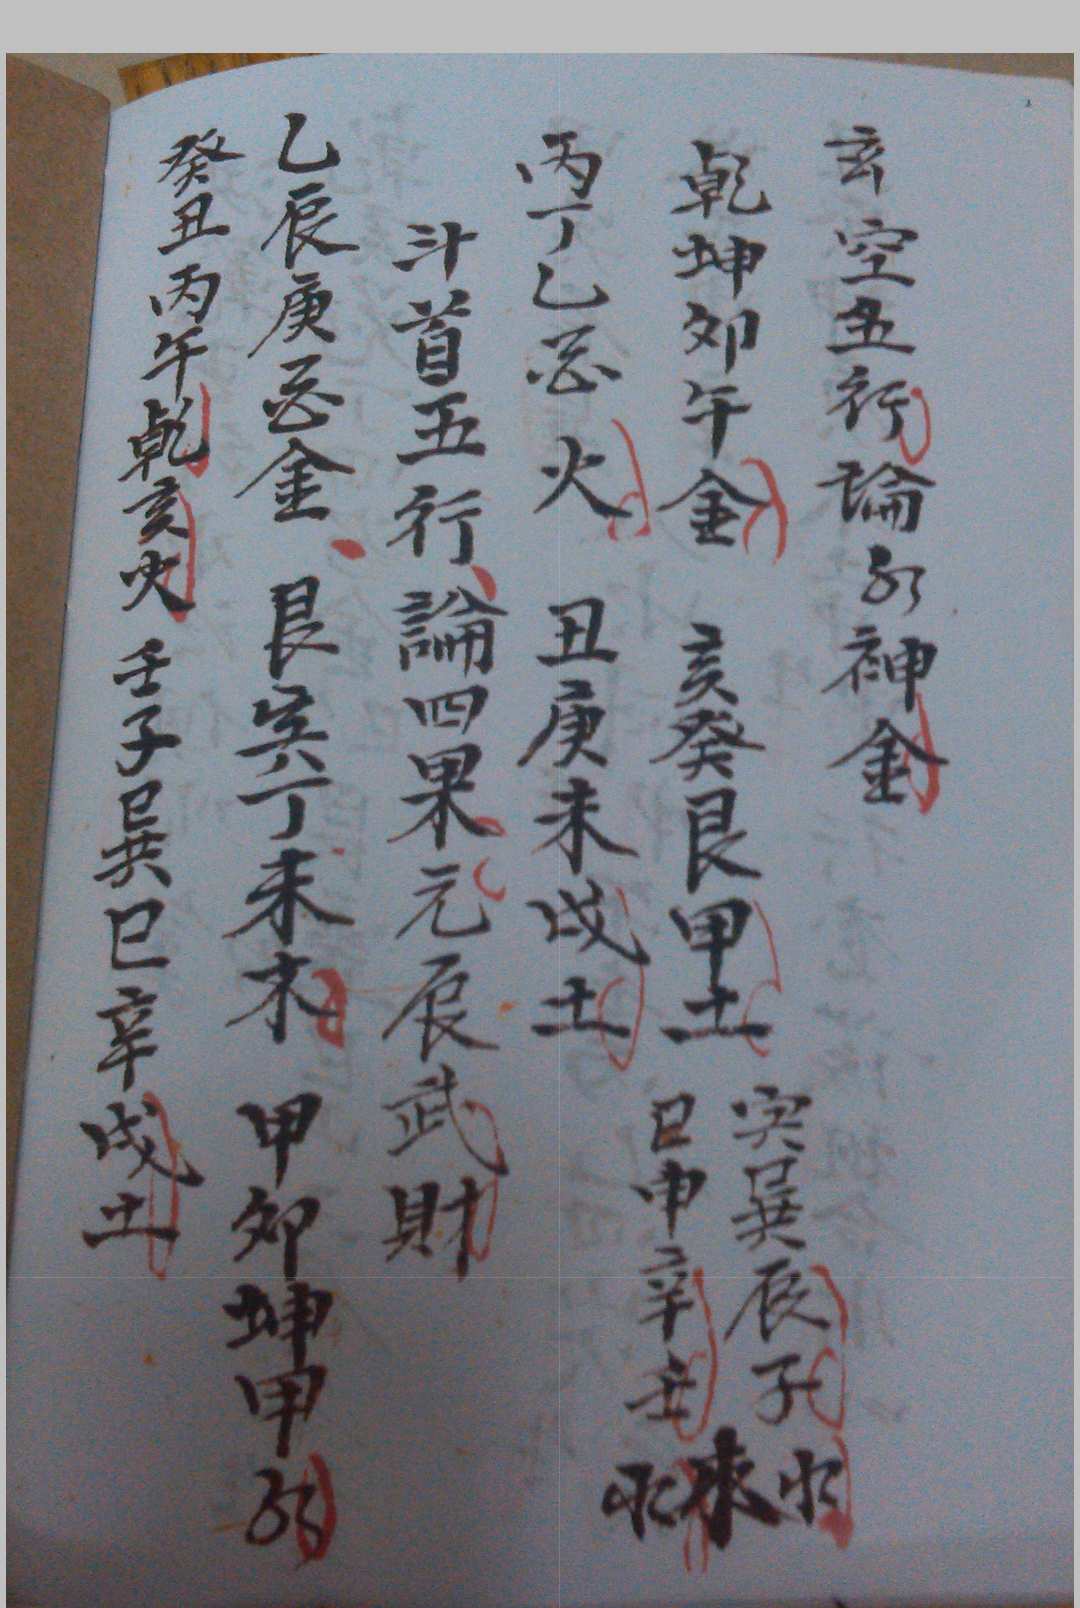 玄空五行論水神金
乾坤卯午金 亥癸艮甲土 寅巽辰子水
巳申辛壬水來
丙丁乙酉火 丑庚未戌土
斗首五行論四果元辰武財
乙辰庚酉金 艮寅丁未木 甲卯坤申水
癸丑丙午乾亥火 壬子巽巳辛戌土